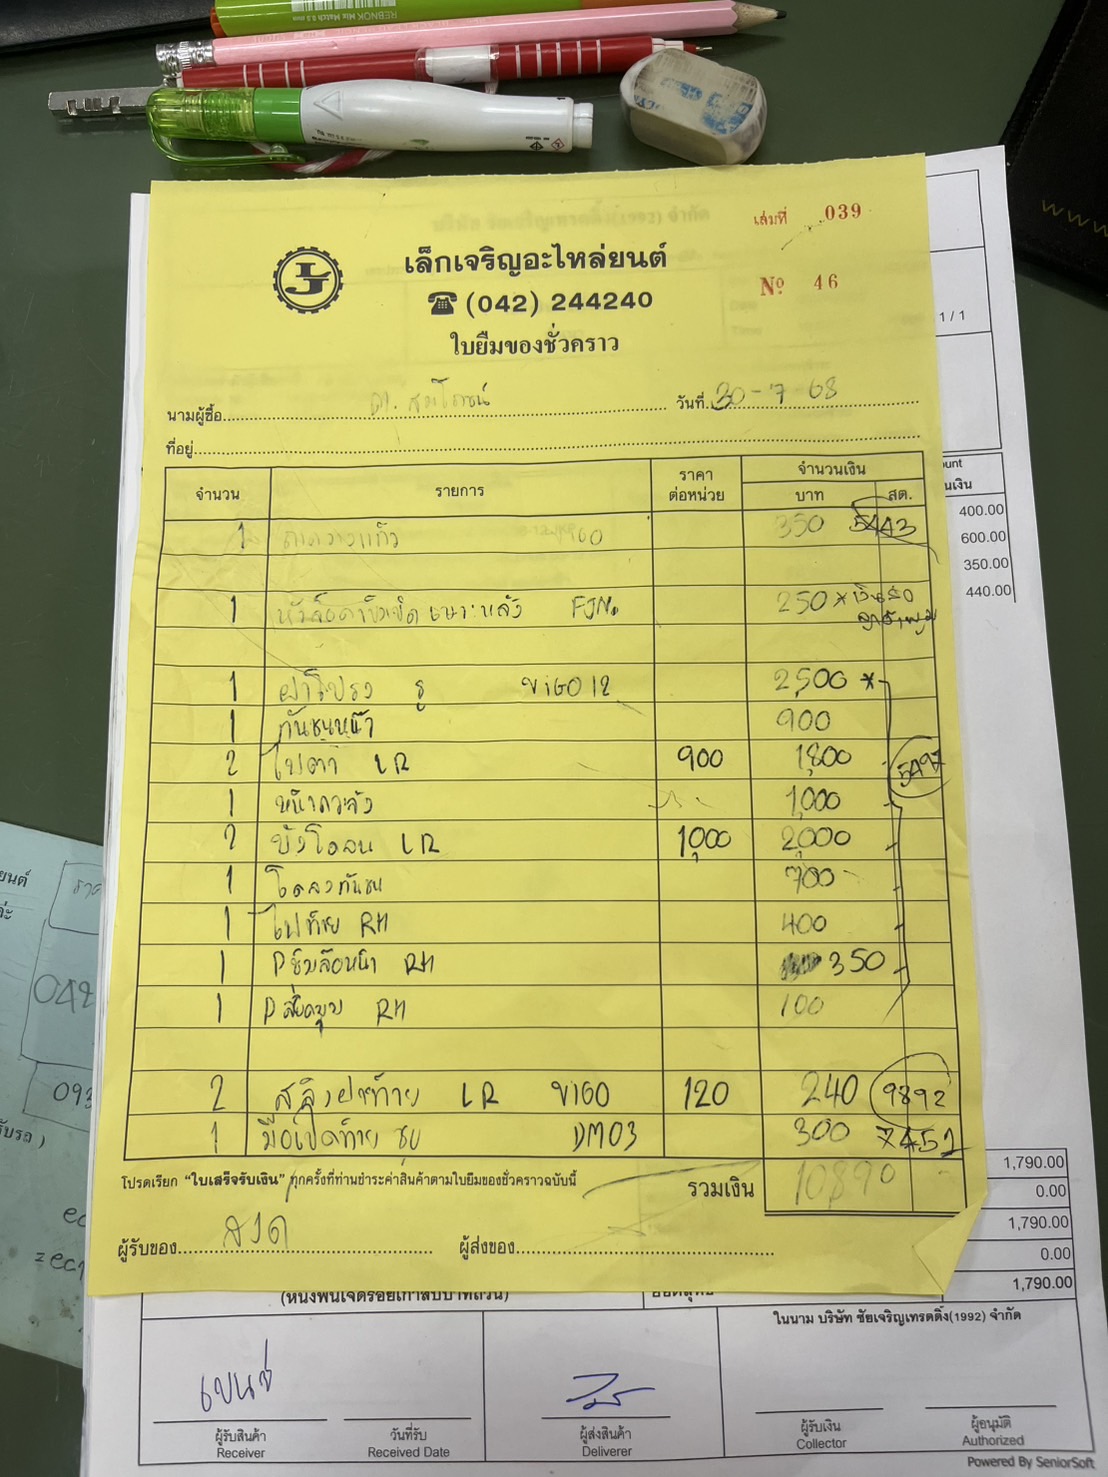 REBNOK Mix Match 0.5 mm
เล่มที่ 039
เล็กเจริญอะไหล่ยนต์
LJ
(042) 244240
Nº 46
ใบยืมของชั่วคราว
1 / 1
นามผู้ซื้อ วันที่ 30-7-68
ที่อยู่
จำนวน รายการ ราคาต่อหน่วย จำนวนเงิน
บาท สต.
1 350 5443
400.00
600.00
350.00
440.00
1 250 *
1 ฝาโปรง รู VIGO12 2,500 *
1 กันชนหน้า 900
2 ไฟต่ำ LR 900 1,800 5497
1 หน้ากระจัง 1,000
2 บังโคลน LR 1,000 2,000
1 700
1 ไฟท้าย RH 400
1 Pซุ้มล้อหน้า RH 350
1 RH 100
2 สลิงฝาท้าย LR VIGO 120 240 9892
1 มือเปิดท้าย ชุบ DM03 300 7452
โปรดเรียก "ใบเสร็จรับเงิน" ทุกครั้งที่ท่านชำระค่าสินค้าตามใบยืมของชั่วคราวฉบับนี้ รวมเงิน 10890
ผู้รับของ ผู้ส่งของ
1,790.00
0.00
1,790.00
0.00
1,790.00
(หนึ่งพันเจ็ดร้อยเก้าสิบบาทถ้วน)
ในนาม บริษัท ชัยเจริญเทรดดิ้ง(1992) จำกัด
ผู้รับสินค้า วันที่รับ ผู้ส่งสินค้า ผู้รับเงิน ผู้อนุมัติ
Receiver Received Date Deliverer Collector Authorized
Powered By SeniorSoft